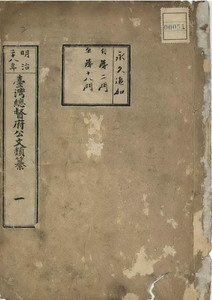 明治
二十八年
臺灣總督府公文類纂 一
永久追加
自第二門
至第十八門